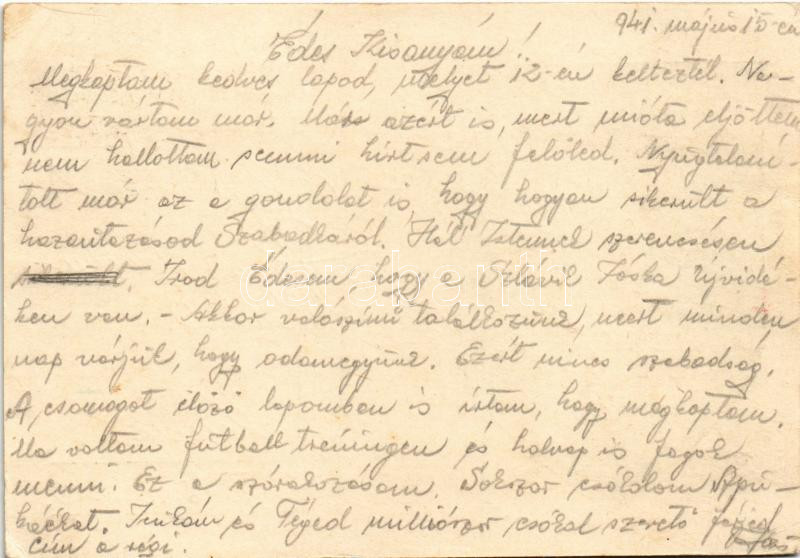 941. május 15-én
Édes Kisanyám!
Megkaptam kedves lapod, melyet 12-én kelteztél. Na-
gyon vártam már. Már azért is, mert mióta eljöttem
nem hallottam semmi hírt sem felőled. Nyugtalaní-
tott már az a gondolat is, hogy hogyan sikerült a
hazautazásod Szabadkáról. Hál' Istennek szerencsésen
Irod Édesem, hogy a Szlávik Jóska Újvidé-
ken van. - Akkor valószínű találkozunk, mert minden
nap várjuk, hogy odamegyünk. Ezért nincs szabadság.
A csomagot előző lapomban is írtam, hogy megkaptam.
Ma voltam futball tréningen és holnap is fogok
menni. Ez a szórakozásom. Sokszor csókolom Apu-
káékat. Inkám és Téged milliószor csókol szerető férjed
Cím a régi.